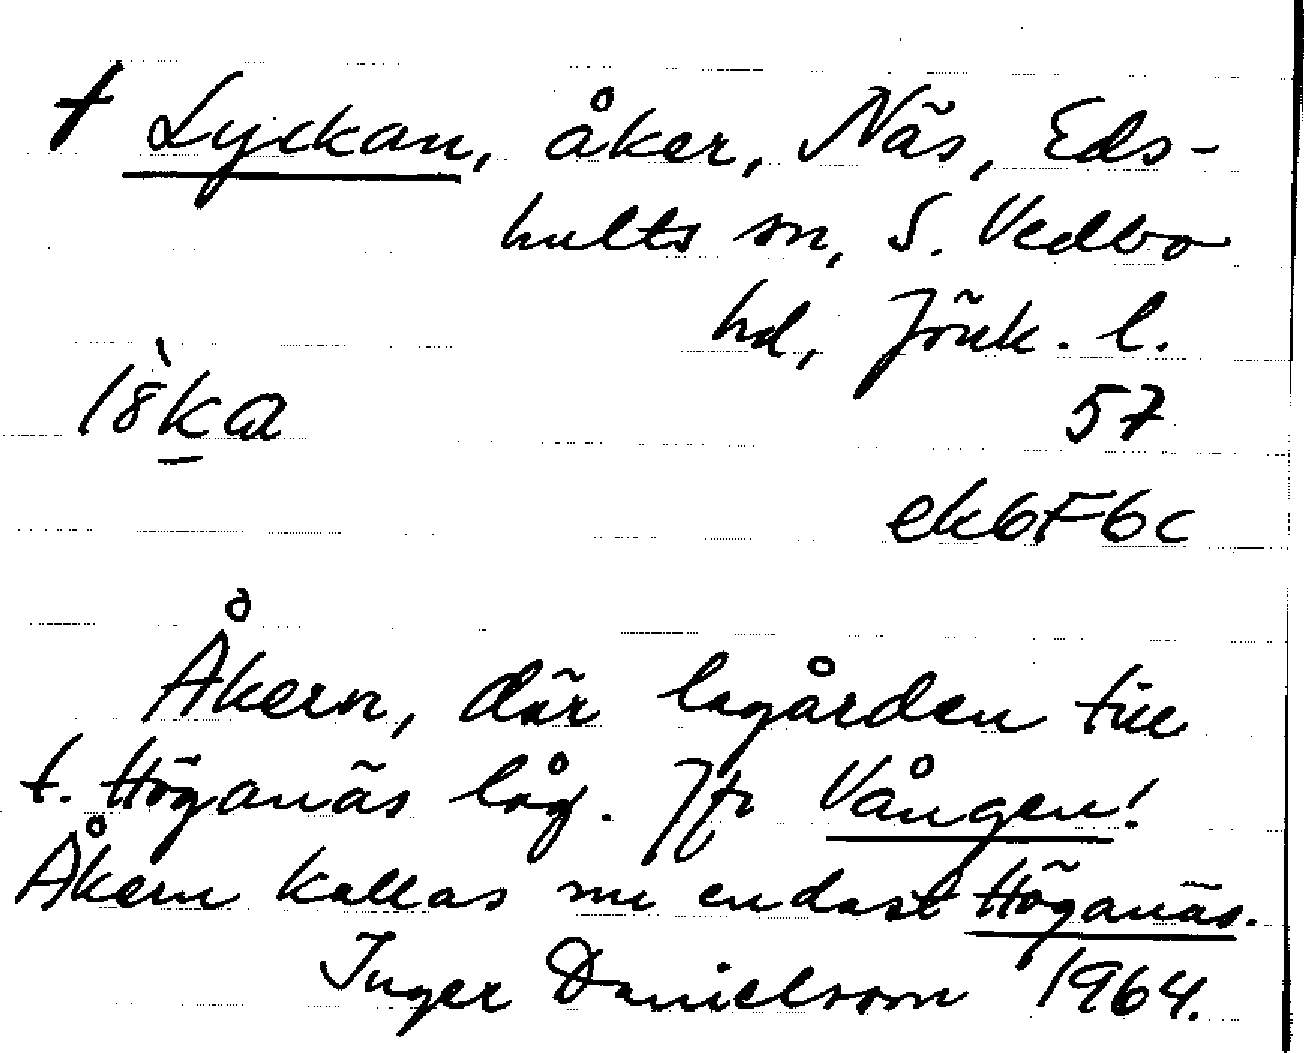 † Lyckan, åker, Näs, Eds-
hults sn, S. Vedbo
hd, Jönk. l.
57
ek6F6c
Åkern, där lagården till
t. Höganäs låg. Jfr Vången!
Åkern kallas nu endast Höganäs.
Inger Danielsson 1964.